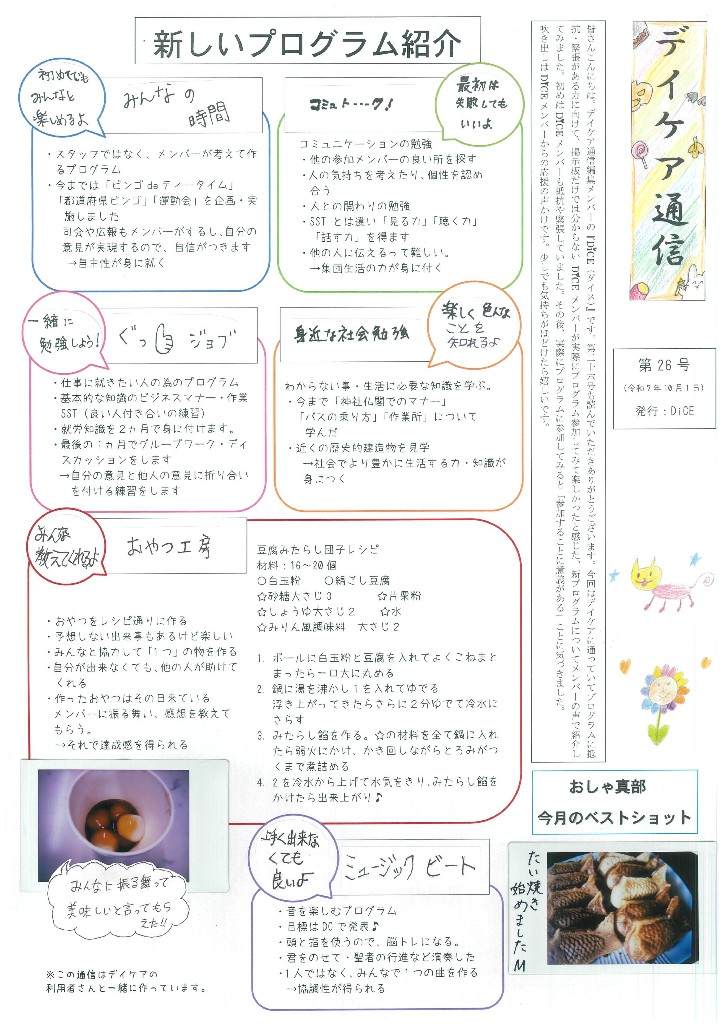 新しいプログラム紹介
デイケア通信
第26号
(令和7年10月1日)
発行：DiCE
皆さんこんにちは。デイケア通信編集メンバーの『DiCE（ダイス）』です。第二十六号も読んでいただきありがとうございます。今回はデイケアに通っていてプログラムに抵
抗・緊張がある方に向けて、掲示板だけでは分からない DiCE メンバーが実際にプログラム参加してみて楽しかったと感じた、新プログラムについてメンバーの声で紹介し
てみました。初めは DiCE メンバーも抵抗や緊張していました。その後、実際にプログラムに参加してみると「参加することに意義がある」ことに気づきました。
吹き出しは DiCE メンバーからの応援の声かけです。少しでも気持ちがほどけたら嬉しいです。
初めてでも
みんなと
楽しめるよ
みんなの
時間
・スタッフではなく、メンバーが考えて作
るプログラム
・今までは「ビンゴ de ティータイム」
「都道府県ビンゴ」「運動会」を企画・実
施しました
司会や広報もメンバーがするし、自分の
意見が実現するので、自信がつきます
→自主性が身に就く
コミュトーーク!
最初は
失敗しても
いいよ
コミュニケーションの勉強
・他の参加メンバーの良い所を探す
・人の気持ちを考えたり、個性を認め
合う
・人との関わりの勉強
・SST とは違い「見る力」「聴く力」
「話す力」を得ます
・他の人に伝えるって難しい。
→集団生活の力が身に付く
一緒に
勉強しよう!
ぐっ ジョブ
・仕事に就きたい人の為のプログラム
・基本的な知識のビジネスマナー・作業
SST（良い人付き合いの練習）
・就労知識を２ヵ月で身に付けます。
・最後の１ヵ月でグループワーク・ディ
スカッションをします
→自分の意見と他人の意見に折り合い
を付ける練習をします
身近な社会勉強
楽しく色んな
ことを
知れるよ
わからない事・生活に必要な知識を学ぶ。
・今まで「神社仏閣でのマナー」
「バスの乗り方」「作業所」について
学んだ
・近くの歴史的建造物を見学
→社会でより豊かに生活する力・知識が
身につく
みんな
教えてくれるよ
おやつ工房
・おやつをレシピ通りに作る
・予想しない出来事もあるけど楽しい
・みんなと協力して「１つ」の物を作る
・自分が出来なくても、他の人が助けて
くれる
・作ったおやつはその日来ている
メンバーに振る舞い、感想を教えて
もらう。
→それで達成感を得られる
豆腐みたらし団子レシピ
材料：16～20個
○白玉粉　○絹ごし豆腐
☆砂糖大さじ３　☆片栗粉
☆しょうゆ大さじ２　☆水
☆みりん風調味料　大さじ２
1. ボールに白玉粉と豆腐を入れてよくこねまと
まったら一口大に丸める
2. 鍋に湯を沸かし１を入れてゆでる
浮き上がってきたらさらに２分ゆでて冷水に
さらす
3. みたらし餡を作る。☆の材料を全て鍋に入れ
たら弱火にかけ、かき回しながらとろみがつ
くまで煮詰める
4. ２を冷水から上げて水気をきり、みたらし餡を
かけたら出来上がり♪
みんなに振る舞って
美味しいと言ってもら
えた!!
上手く出来な
くても
良いよ
ミュージック ビート
・音を楽しむプログラム
・目標は DC で発表♪
・頭と指を使うので、脳トレになる。
・君をのせて・聖者の行進など演奏した
・１人ではなく、みんなで１つの曲を作る
→協調性が得られる
おしゃ真部
今月のベストショット
たい焼き
始めましたM
※この通信はデイケアの
利用者さんと一緒に作っています。